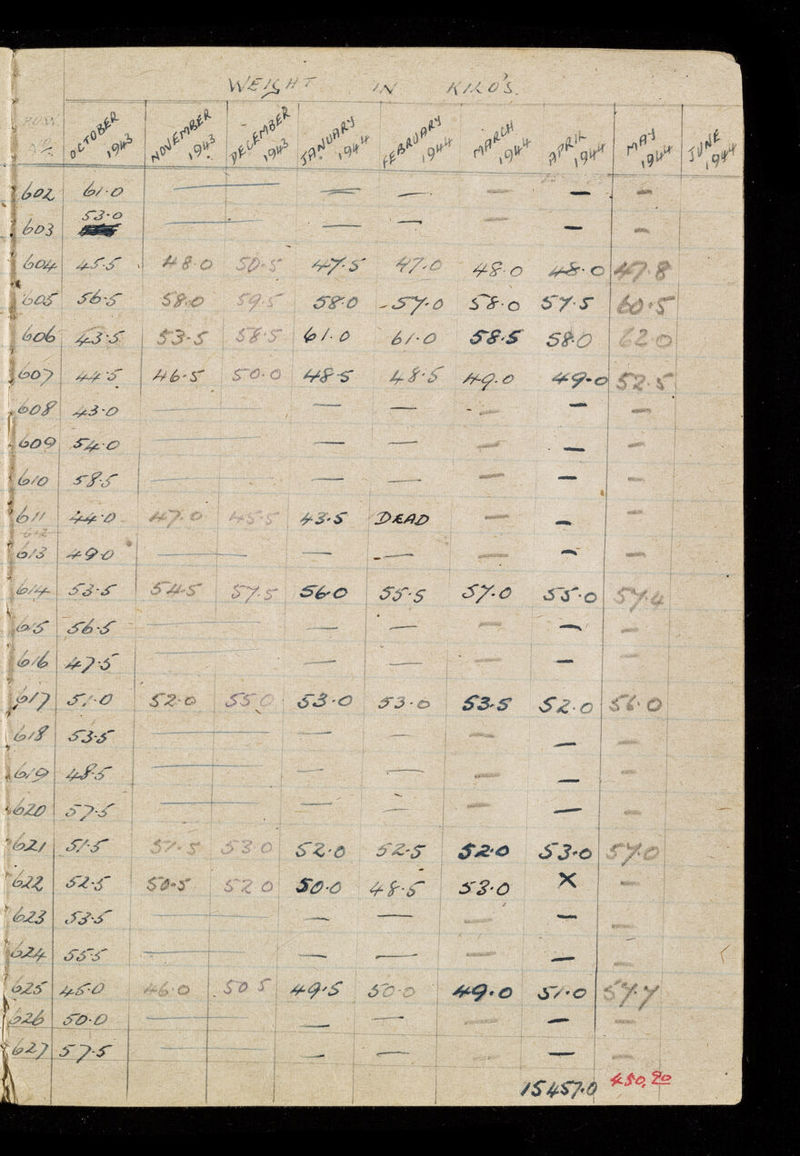 WEIGHT IN KILO'S.
OCTOBER 1943 NOVEMBER 1943 DECEMBER 1943 JANUARY 1944 FEBRUARY 1944 MARCH 1944 APRIL 1944 MAY 1944 JUNE 1944
602 61.0 — — — — — —
603 53.0 — — — — —
604 45.5 48.0 50.5 47.5 47.0 48.0 48.0 47.8
605 56.5 58.0 59.5 58.0 57.0 58.0 57.5 60.5
606 43.5 53.5 58.5 61.0 61.0 58.5 58.0 62.0
607 44.5 46.5 50.0 48.5 48.5 49.0 49.0 52.5
608 43.0 — — — — — —
609 54.0 — — — — — —
610 58.5 — — — — — —
611 44.0 47.0 45.5 43.5 DEAD — — —
612
613 49.0 — — — — — —
614 53.5 54.5 57.5 56.0 55.5 57.0 55.0 57.4
615 56.5 — — — — — —
616 47.5 — — — — — —
617 51.0 52.0 55.0 53.0 53.0 53.5 52.0 56.0
618 53.5 — — — — — —
619 48.5 — — — — — —
620 57.5 — — — — — —
621 51.5 51.5 53.0 52.0 52.5 52.0 53.0 57.0
622 52.5 50.5 52.0 50.0 48.5 53.0 X —
623 53.5 — — — — — —
624 55.5 — — — — — —
625 45.0 46.0 50.5 49.5 50.0 49.0 51.0 57.7
626 50.0 — — — — — —
627 57.5 — — — — — —
15457.0 450.90